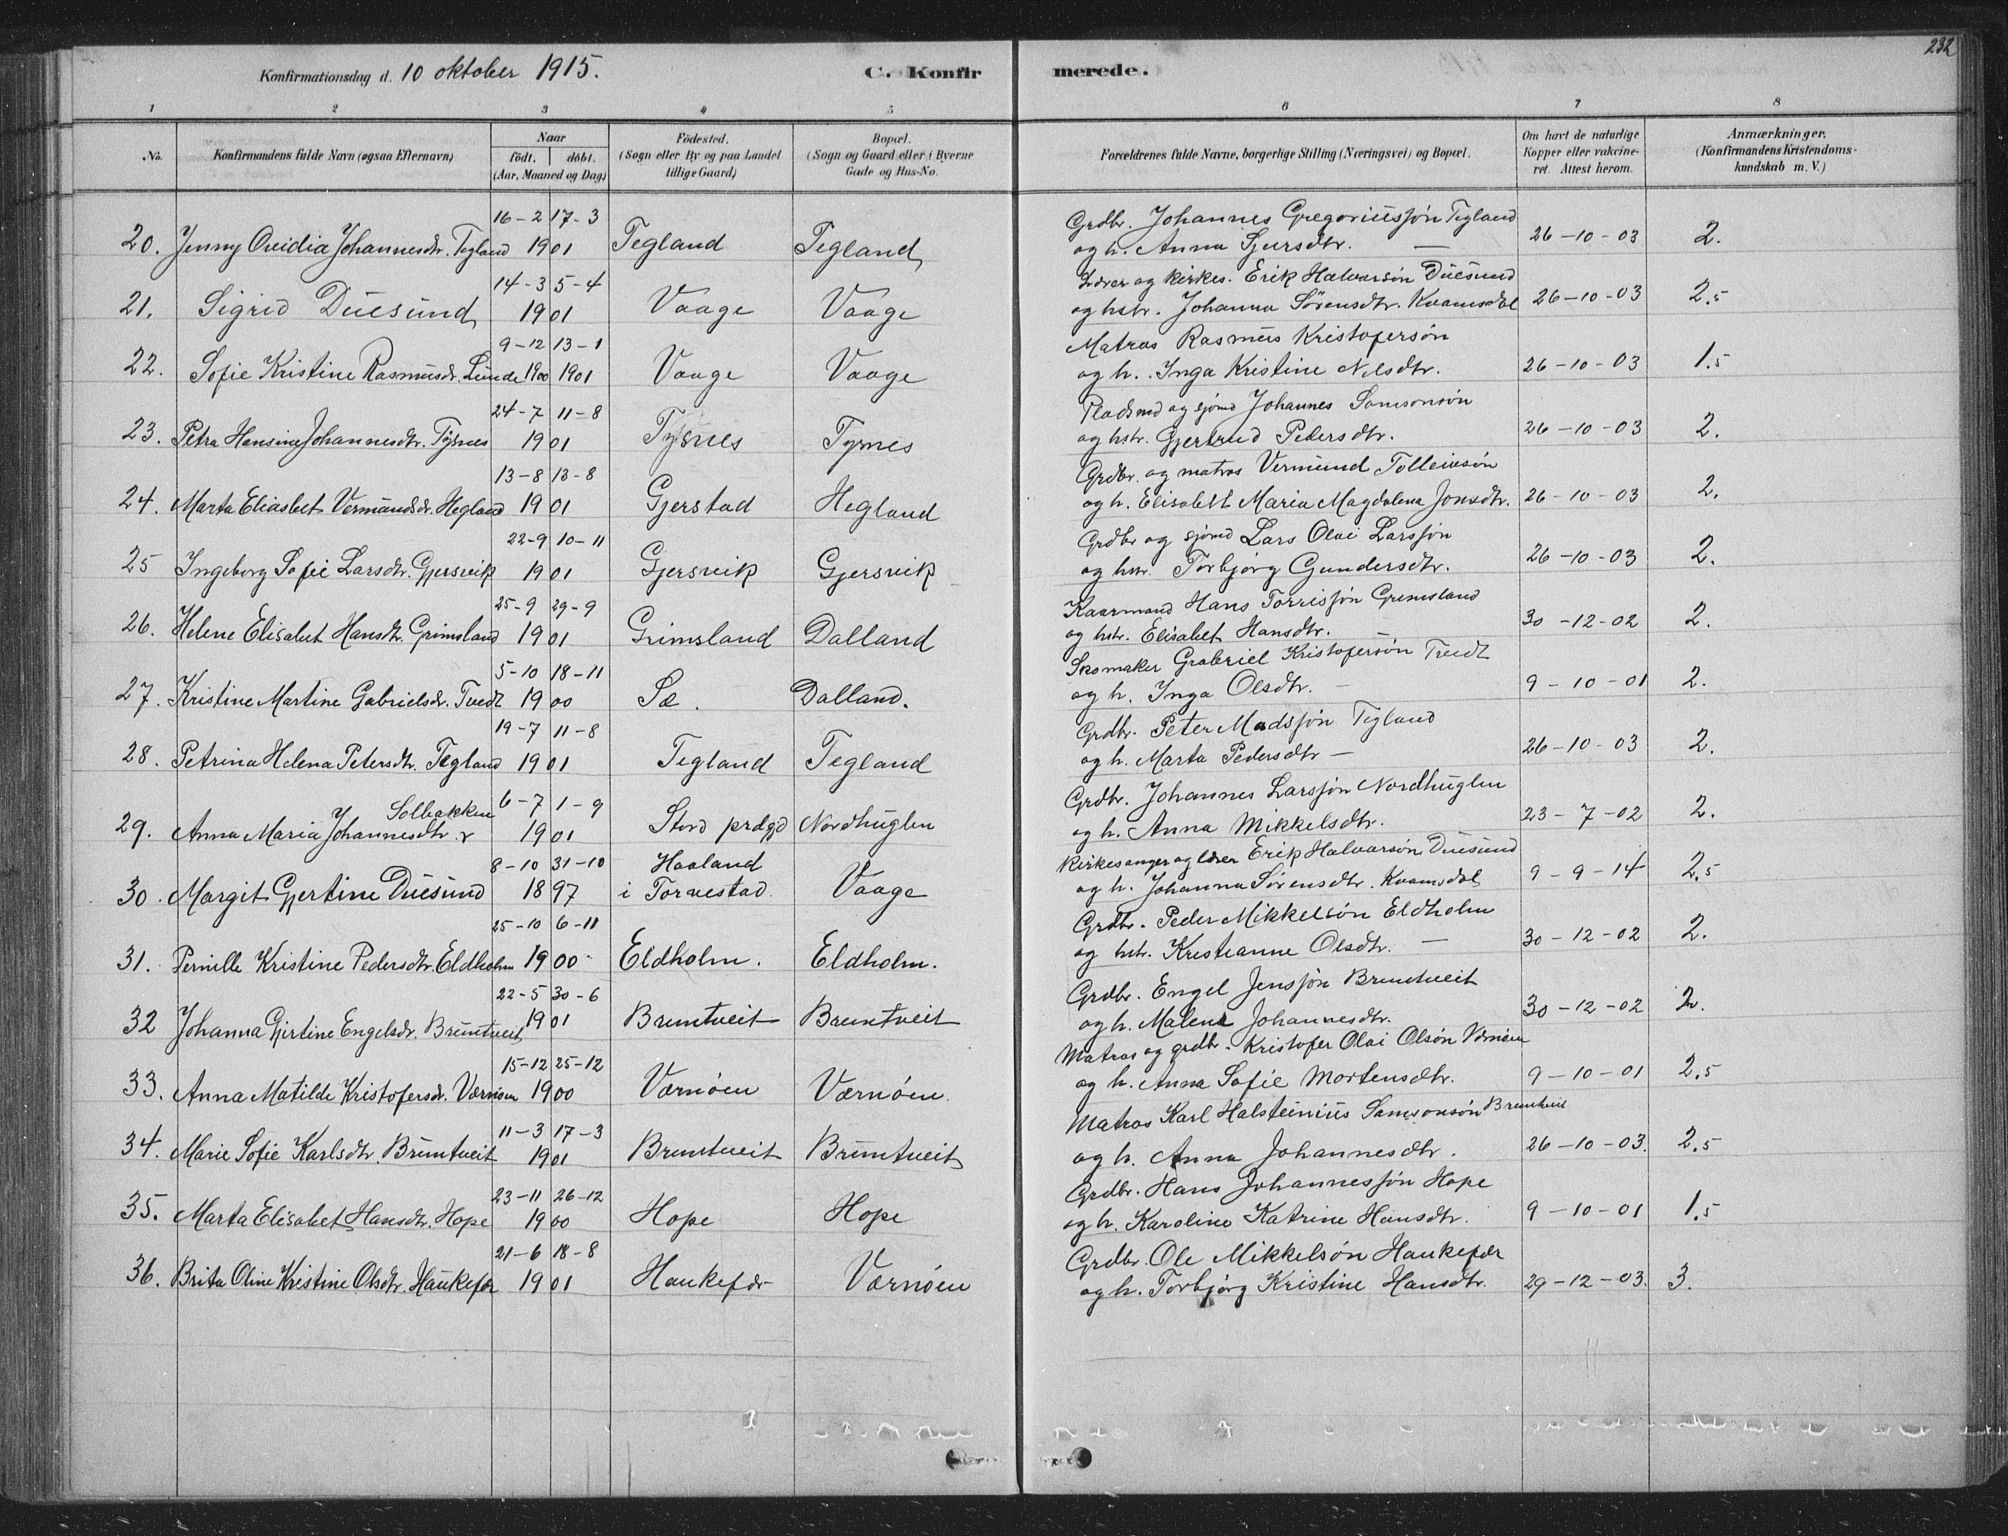 232
Konfirmationsdag d. 10 oktober 1915.
C. Konfirmerede.
1 2 3 4 5 6 7 8
No.
Konfirmandens fulde Navn (ogsaa Efternavn)
Naar
födt. döbt.
(Aar, Maaned og Dag)
Födested.
(Sogn eller By og paa Landet
tillige Gaard)
Bopæl.
(Sogn og Gaard eller i Byerne
Gade og Hus-No.
Forældrenes fulde Navne, borgerlige Stilling (Næringsvei) og Bopæl.
Om havt de naturlige
Kopper eller vakcine-
ret. Attest herom.
Anmærkninger.
(Konfirmandens Kristendoms-
kundskab m. V.)
16-2 17-3 Grdbr. Johannes Gregoriussøn Tegland
20. Jenny Ovidia Johannesdtr. Tegland 1901 Tegland Tegland og h. Anna Sjursdtr. — 26-10-03 2.
14-3 5-4 Lærer og kirkes. Erik Halvorsøn Duesund
21. Sigrid Duesund 1901 Vaage Vaage og hstr. Johanna Sørensdtr. Kvamsdal 26-10-03 2.5
9-12 13-1 Matros Rasmus Kristofersøn
22. Sofie Kristine Rasmusdr. Lunde 1900 1901 Vaage Vaage og h. Inga Kristine Nilsdtr. 26-10-03 1.5
24-7 11-8 Pladsmd og sjømd Johannes Samsonsøn
23. Petra Hansine Johannesdtr. Tysnes 1901 Tysnes Tysnes og hstr. Gjertrud Pedersdtr. 26-10-03 2.
13-8 13-8 Grdbr. og matros Vermund Tolleivsøn
24. Marta Eliasbet Vermundsdr. Hegland 1901 Gjerstad Hegland og h. Elisabett Maria Magdalena Jonsdtr. 26-10-03 2.
22-9 10-11 Grdbr og sjømd Lars Olai Larssøn
25 Ingeborg Sofie Larsdtr. Gjersvik 1901 Gjersvik Gjersvik og hstr. Torbjørg Gundersdtr. 26-10-03 2.
25-9 29-9 Kaarmand Hans Torrissøn Grimsland
26. Helene Elisabet Hansdtr. Grimsland 1901 Grimsland Dalland og hstr. Elisabet Hansdtr. — 30-12-02 2.
5-10 18-11 Skomaker Grabriel Kristofersøn Tvedt
27. Kristine Martine Gabrielsdr. Tvedt 1900 Sæ. Dalland. og h. Inga Olsdtr. — 9-10-01 2.
19-7 11-8 Grdbr. Peter Madssøn Tegland
28. Petrina Helena Petersdtr. Tegland 1901 Tegland Tegland og h. Marta Pedersdtr — 26-10-03 2.
Solbakken 6-7 1-9 Grdbr. Johannes Larssøn Nordhuglen
29. Anna Maria Johannesdtr. v 1901 Stord prdgd Nordhuglen og h. Anna Mikkelsdtr. 23-7-02 2.
8-10 31-10 Haaland Kirkesanger og lærer Erik Halvarsøn Duesund
30. Margit Gjertine Duesund 1897 i Torvestad. Vaage og h. Johanna Sørensdtr. Kvamsdal 9-9-14 2.5
25-10 6-11 Grdbr. Peder Mikkelsøn Eldholm
31. Pernille Kristine Pedersdtr. Eldholm 1900 Eldholm. Eldholm. og hstr. Kristianne Olsdtr. — 30-12-02 2.
22-5 30-6 Grdbr. Engel Jenssøn Bruntveit
32 Johanna Gjertine Engelsdr. Bruntveit 1901 Bruntveit Bruntveit og h. Malene Johannesdtr. 30-12-02 2.
15-12 25-12 Matros og grdbr. Kristofer Olai Olsøn Værnøen
33. Anna Matilde Kristofersdr. Værnøen 1900 Værnøen Værnøen. og h. Anna Sofie Mortensdtr. 9-10-01 2.5
11-3 17-3 Matros Karl Halsteinius Samsonsøn Bruntveit
34. Marie Sofie Karlsdtr. Bruntveit 1901 Bruntveit Bruntveit og h. Anna Johannesdtr. 26-10-03. 2.5
23-11 26-12 Grdbr. Hans Johannessøn Hope
35. Marta Elisabet Hansdtr. Hope 1900 Hope Hope og h. Karoline Katrine Hansdtr. 9-10-01 1.5
21-6 18-8 Grdbr. Ole Mikkelsøn Haukefær
36. Brita Oline Kristine Olsdtr. Haukefær 1901 Haukefær Værnøen og h. Torbjørg Kristine Hansdtr. 29-12-03. 3.